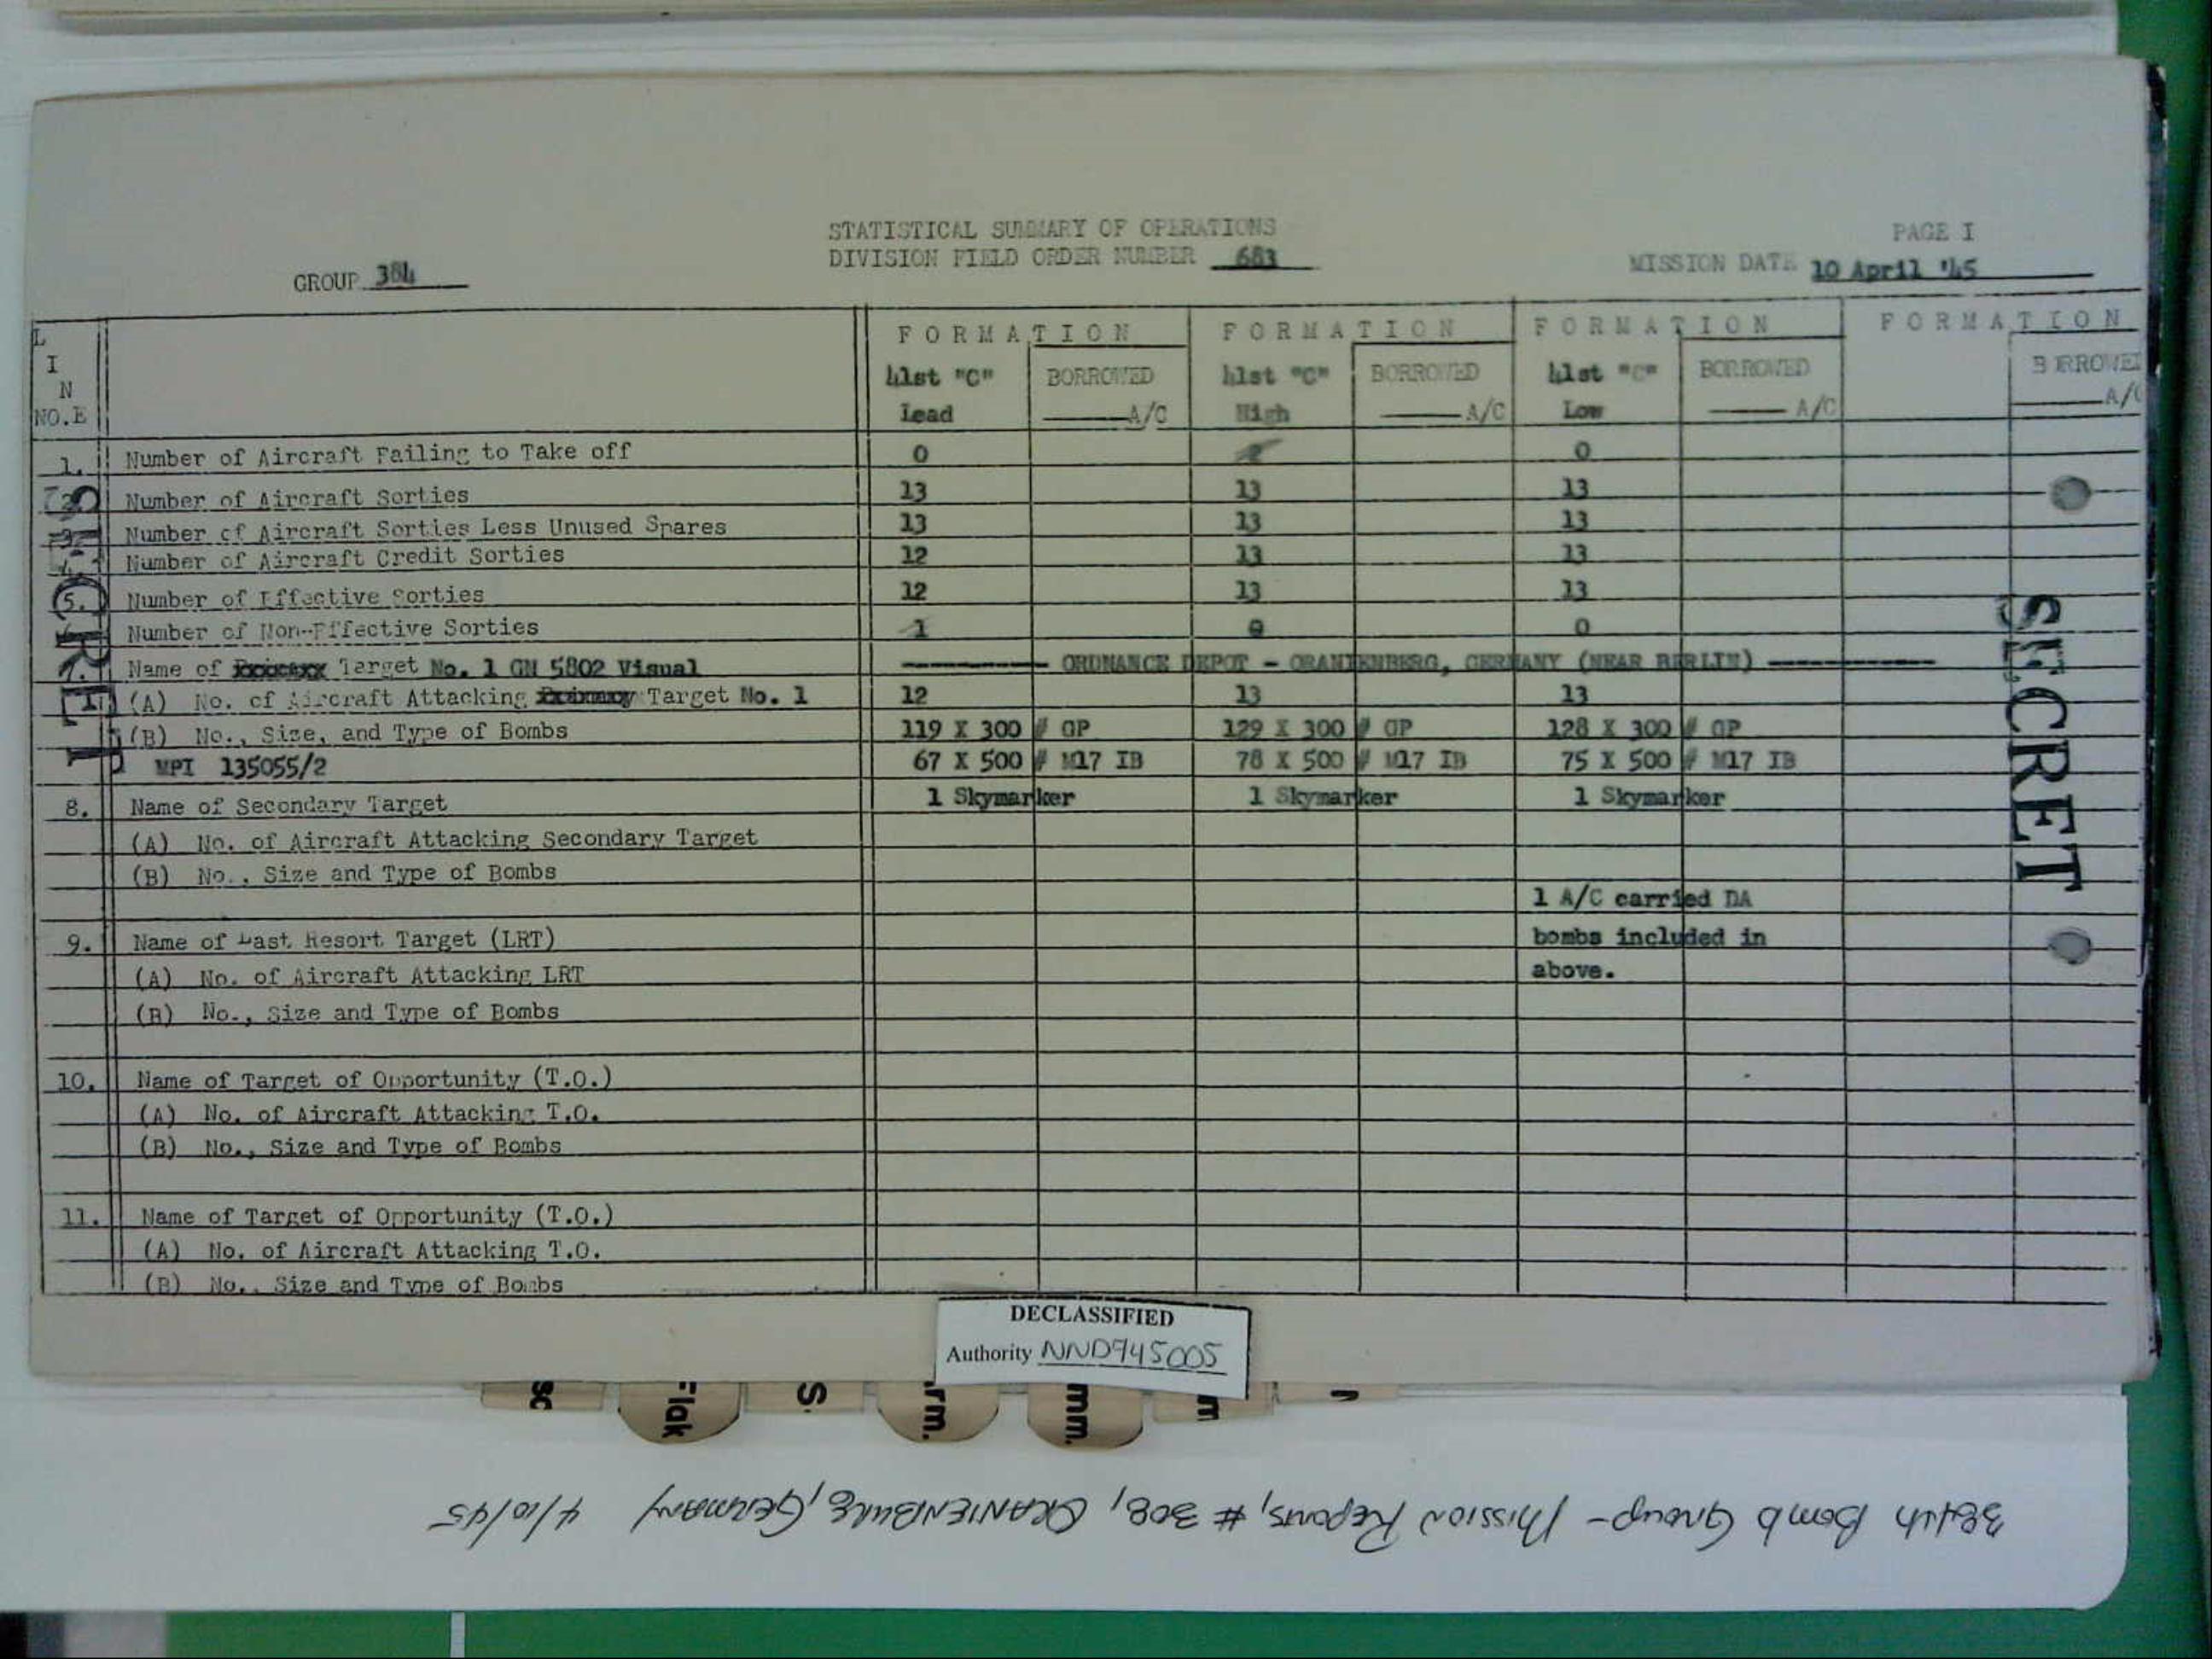 STATISTICAL SUMMARY OF OPERATIONS
PAGE I
GROUP 384
DIVISION FIELD ORDER NUMBER 683
MISSION DATE 10 April '45
LINE NO.
FORMATION FORMATION FORMATION FORMATION
41st "C" BORROWED 41st "C" BORROWED 41st "C" BORROWED BORROWED
Lead A/C High A/C Low A/C A/C
1. Number of Aircraft Failing to Take off 0 0
2. Number of Aircraft Sorties 13 13 13
3. Number of Aircraft Sorties Less Unused Spares 13 13 13
4. Number of Aircraft Credit Sorties 12 13 13
5. Number of Effective Sorties 12 13 13
Number of Non-Effective Sorties 1 0 0
7. Name of Target No. 1 GN 5802 Visual ORDNANCE DEPOT - ORANIENBERG, GERMANY (NEAR BERLIN)
(A) No. of Aircraft Attacking Primary Target No. 1 12 13 13
(B) No., Size, and Type of Bombs 119 X 300 # GP 129 X 300 # GP 128 X 300 # GP
MPI 135055/2 67 X 500 # M17 IB 78 X 500 # M17 IB 75 X 500 # M17 IB
8. Name of Secondary Target 1 Skymarker 1 Skymarker 1 Skymarker
(A) No. of Aircraft Attacking Secondary Target
(B) No., Size and Type of Bombs
1 A/C carried DA
9. Name of Last Resort Target (LRT) bombs included in
(A) No. of Aircraft Attacking LRT above.
(B) No., Size and Type of Bombs
10. Name of Target of Opportunity (T.O.)
(A) No. of Aircraft Attacking T.O.
(B) No., Size and Type of Bombs
11. Name of Target of Opportunity (T.O.)
(A) No. of Aircraft Attacking T.O.
(B) No., Size and Type of Bombs
SECRET
SECRET
DECLASSIFIED
Authority NND945005
sc Flak S. rm. mm. m
384th Bomb Group - Mission Reports, # 308, ORANIENBURG, GERMANY 4/10/45